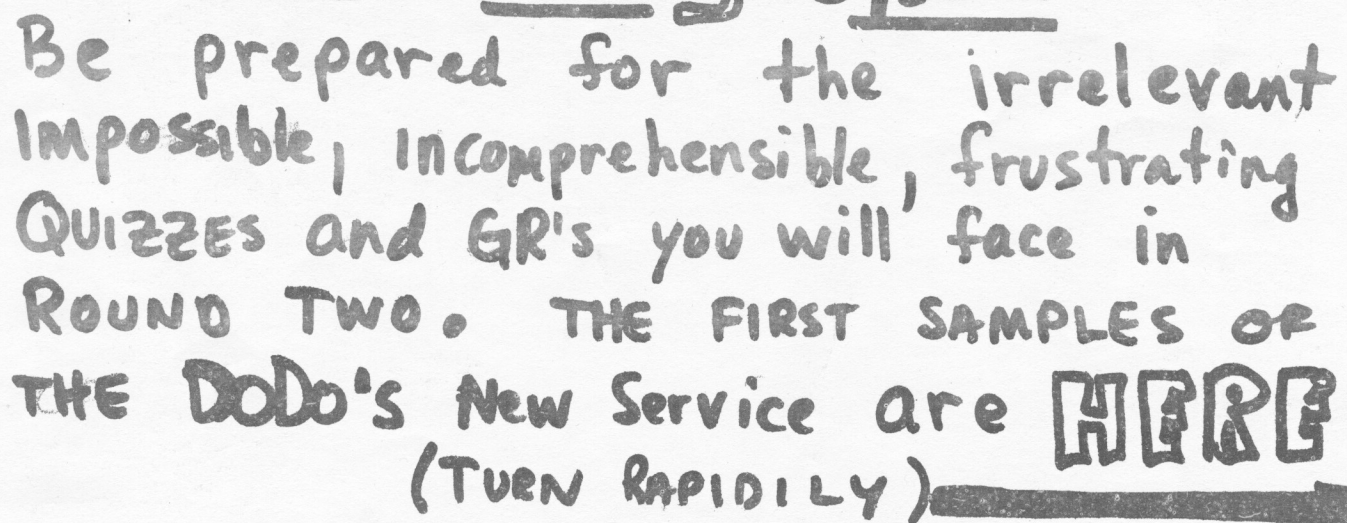 Be prepared for the irrelevant
Impossible, incomprehensible, frustrating
QUIZZES and GR's you will face in
ROUND TWO. THE FIRST SAMPLES OF
THE DoDo's New Service are HERE
(TURN RAPIDILY)